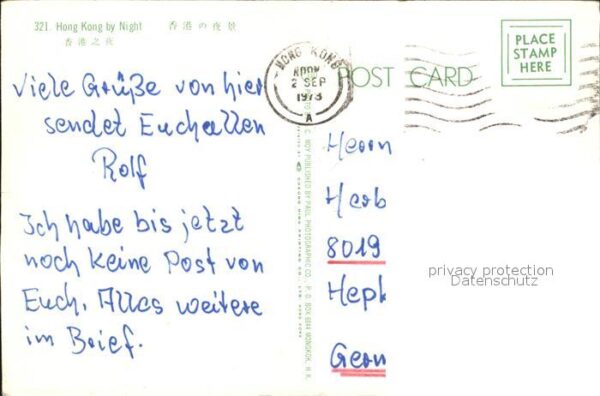 321. Hong Kong by Night 香港の夜景
香港之夜
Viele Grüße von hier
sendet Euch allen
Rolf
Ich habe bis jetzt
noch keine Post von
Euch. Alles weitere
im Brief.
HONG KONG
2 SEP
1973
A
POST CARD
PLACE
STAMP
HERE
Herrn
Herb
8019
Hepl
Germ
privacy protection
Datenschutz